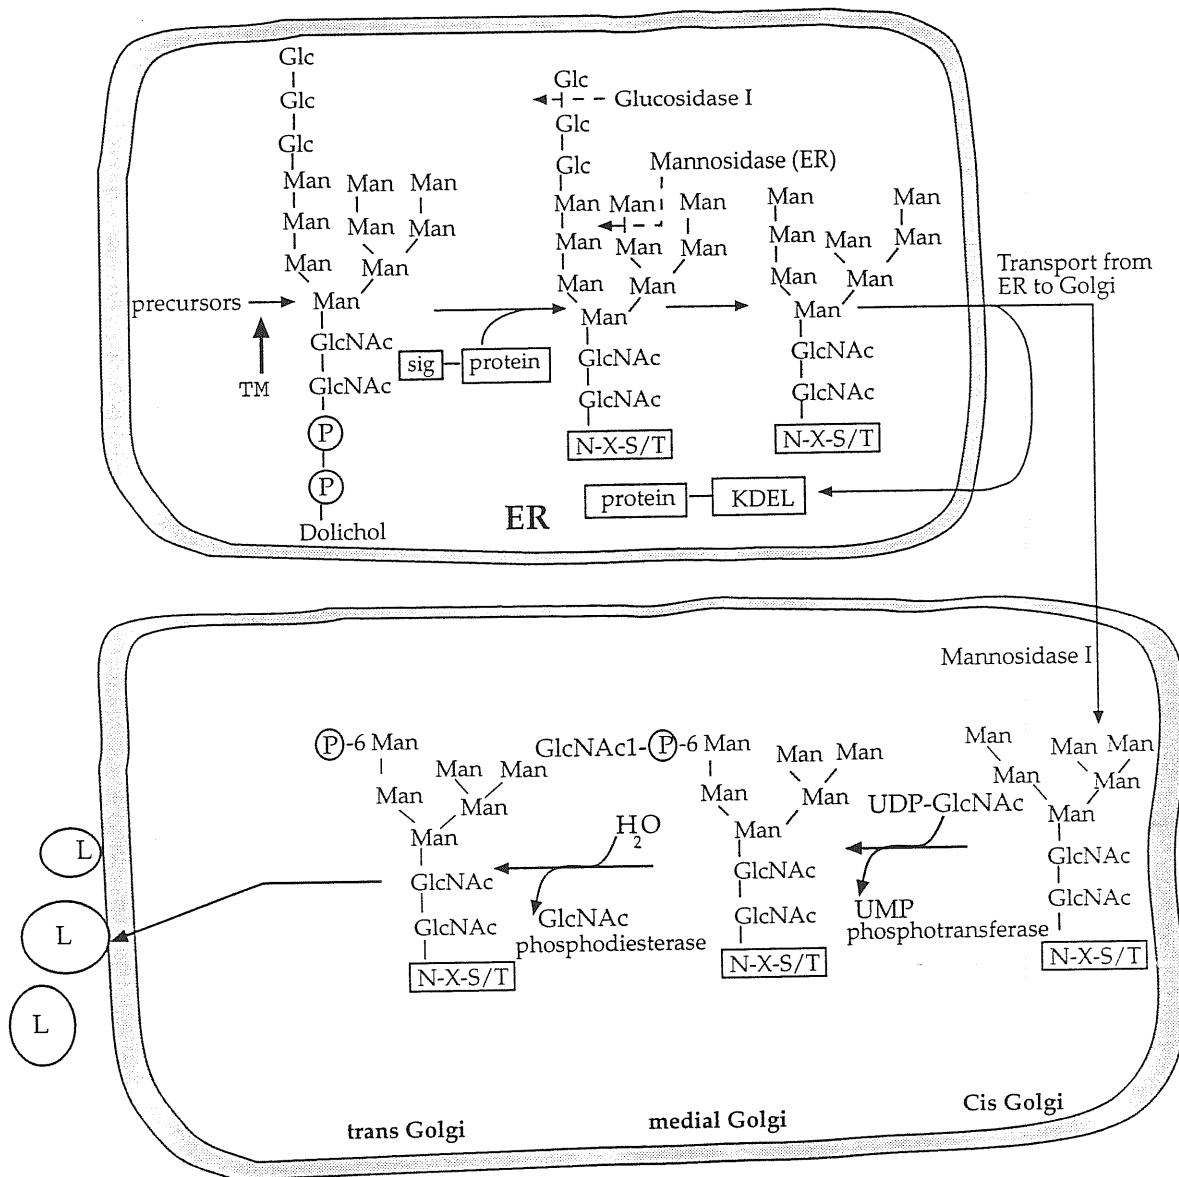 Glc
Glc
Glc
Man Man Man
Man Man Man
Man Man
precursors Man
GlcNAc
TM
GlcNAc
P
P
Dolichol
sig protein
Glc
Glucosidase I
Glc
Glc
Mannosidase (ER)
Man Man Man
Man Man Man
Man Man
Man
GlcNAc
GlcNAc
N-X-S/T
Man Man
Man Man Man
Man Man
Man
GlcNAc
GlcNAc
N-X-S/T
Transport from
ER to Golgi
protein KDEL
ER
Mannosidase I
P-6 Man
Man Man
Man Man
Man
GlcNAc
GlcNAc
N-X-S/T
H2O
GlcNAc
phosphodiesterase
GlcNAc1-P-6 Man
Man Man
Man Man
Man
GlcNAc
GlcNAc
N-X-S/T
UDP-GlcNAc
UMP
phosphotransferase
Man Man Man
Man Man
Man
GlcNAc
GlcNAc
N-X-S/T
L
L
L
trans Golgi
medial Golgi
Cis Golgi